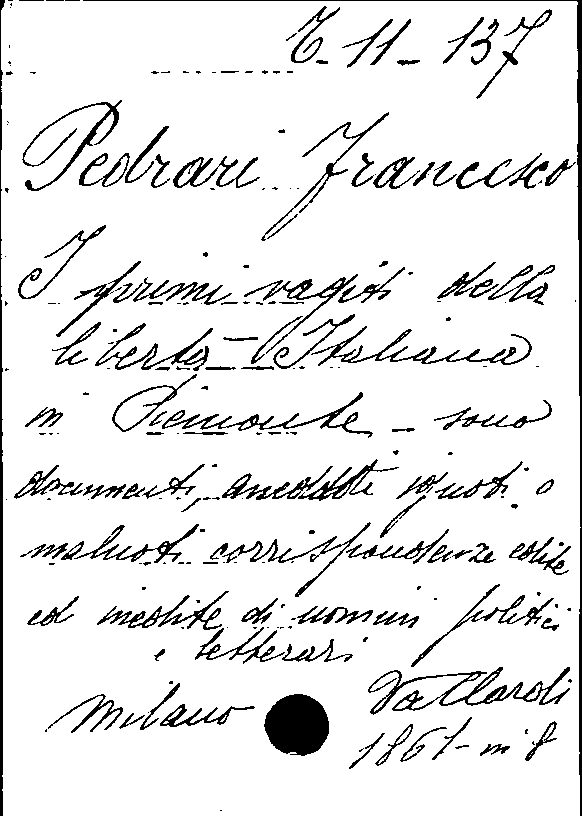 6-11-137
Pedrari Francesco
I primi vagiti della
libertà Italiana
in Piemonte - sono
documenti, aneddoti ignoti o
malnoti corrispondenze edite
ed inedite di uomini politici
e letterari
Milano Vallardi
1861 - in 8